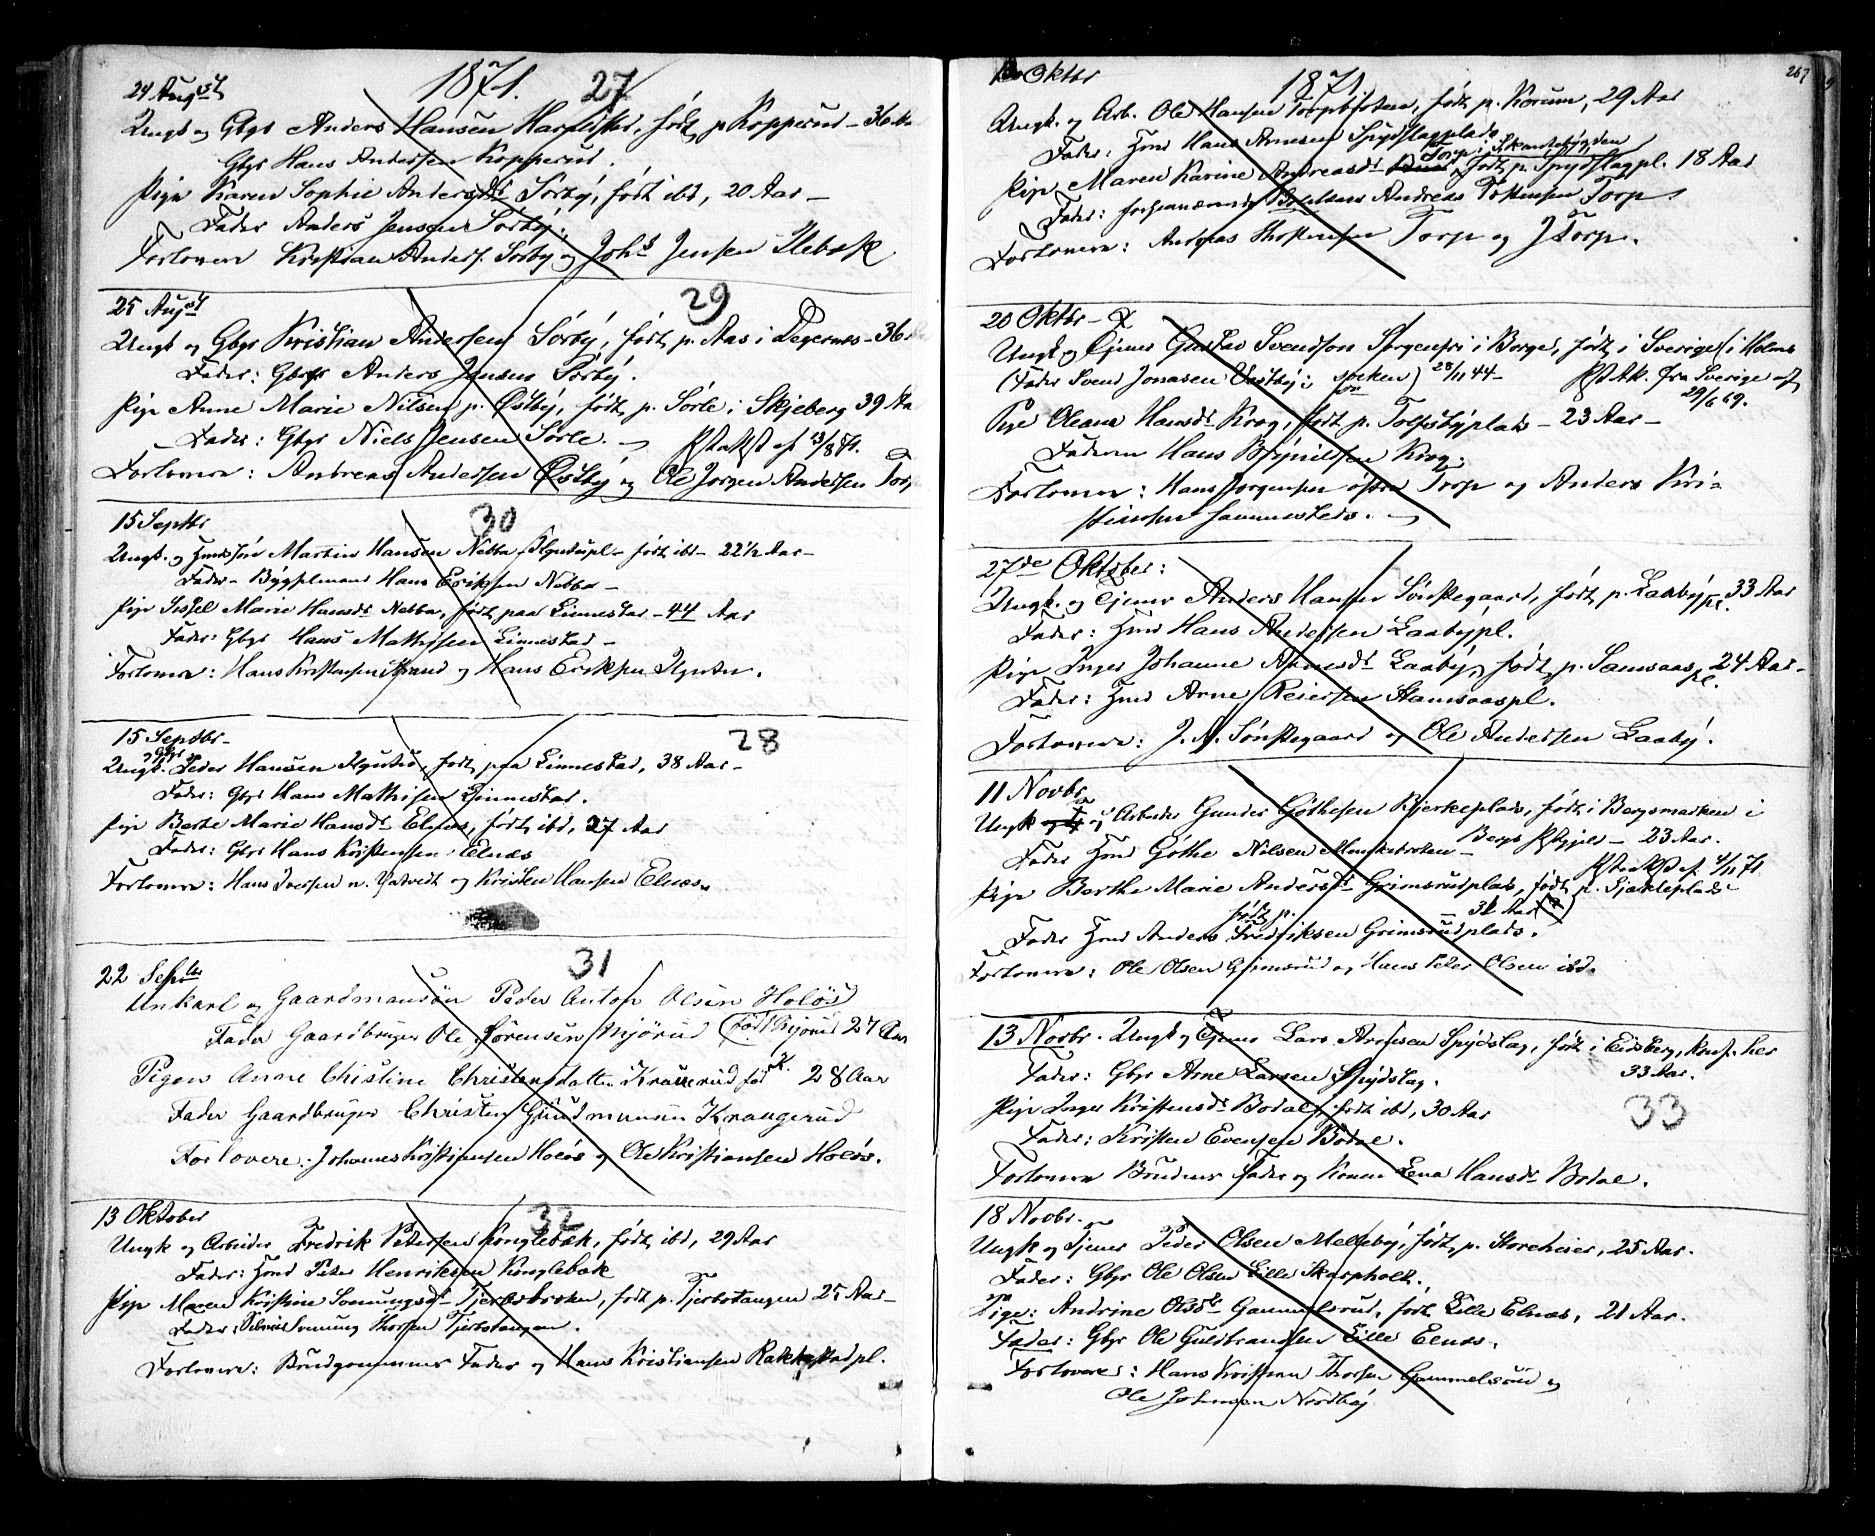 24 August 1871. 27
Ungk og Gbgr Anders Hansen født p Kopperud - 36
Gbgr Hans Andersen Kopperud.
Pige Karen Sophie Andersdt Sørby, født ibd, 20 Aar -
Fader Anders Jensen Sørby.
Forlovere Kristian Anders. Sørby og Johs Jensen Ilebæk
25 August 29
Ungk og Gbgr Kristian Andersen Sørby, født p. Aas i Degernes - 36
Fader: Gbgr Anders Jensen Sørby.
Pige Anne Marie Nilsen p. Østby, født p. Sørle i Skjeberg 39 Aa
Fader: Gbgr Niels Jensen Sørle. af 23/8 71.
Forlovere: Andreas Andersen Østby og Ole Jørgen Andersen Torp
15 Septbr 30
Ungk. og Martin Hansen Nebba født ibd - 22 1/2 Aar -
Fader - Hans Eriksen Nebba -
Pige Sissel Marie Hansdt Nebba, født paa Linnestad - 44 Aar
Fader: Gbgr Hans Mathisen Linnestad -
Forlovere: Hans Kristensen Strand og Hans Eriksen
15 Septbr - 28
Gbgr
Ungk. Peder Hansen født paa Linnestad, 38 Aar -
Fader: Gbgr Hans Mathisen Linnestad.
Pige Berte Marie Hansdt Elnæs, født ibd, 27 Aar
Fader: Gbgr Hans Kristensen Elnæs
Forlovere: Hans Iversen n. og Kristen Hansen Elnæs.
22 Septbr 31
Unkarl og Gaardmansøn Peder Anton Olsen Holøs
Fader Gaardbruger Ole Sørensen Mjørud (født Mjørud 27 Aar
Pigen Anne Christine Christensdatter Krangerud født 28 Aar
Fader Gaardbruger Christen Gudmunsen Krangerud
Forlovere: Johannes Kristiansen Holøs og Ole Kristiansen Holøs.
13 Oktober 32
Ungk og Arbeider Fredrik Petersen Konglebæk, født ibd, 29 Aar
Fader: Hmd Peter Henriksen Konglebæk
Pige Maren Kristine Sømungsdt Tjerbobraten, født p. Tjerbotangen 25 Aar -
Fader: Sømung Thorsen Tjerbotangen.
Forlovere: Brudgommens Fader og Hans Kristiansen Rakkestadpl.
13 Oktbr 1871 267
Ungk. og Arb. Ole Hansen Torpbraten, født p. Korum, 29 Aar
Fader: Hmd Hans Arnesen Spydslagplads
Torp i Skantebygden
Pige Maren Karine Andreasdt født p. Spydslagpl. 18 Aar
Fader: Andreas Torp
Forlovere: Andreas Torp og J Torp.
20 Oktbr -
Ungk og Tjener Gustav Svendson Sorgenfri i Borge, født i Sverige (i Holms
(Fader Svend Jonasen socken) 28/11 44 - fra Sverige af 29/6 69.
Pige Oleana Hansdt Krog, født p. Tolfsbyplads - 23 Aar -
Faderen Hans Krog.
Forlovere: Hans Jørgensen østre Torp og Anders Kri-
stiansen sammesteds.
27de Oktober:
Ungk. og Tjener Anders Hansen Sønstegaard, født p. Laabypl. 33 Aar
Fader: Hmd Hans Andersen Laabypl.
Pige Inger Johanne Arnesdt Laaby, født p. Samsaaspl. 24 Aar -
Fader: Hmd Arne Reiersen Hamsaaspl.
Forlovere: J. A. Sønstegaard og Ole Andersen Laaby.
11 Novbr
Ungk og Arbeider Gunder Gøthesen Bjerkeplads, født i Bergsmarken i
Fader Hmd Gøthe Nilsen Berg - 23 Aar.
af 4/11 71.
Pige Berthe Marie Andersdt Grimsrudplads, født p.
født p. - 31 Aar
Fader Hmd Anders Fredriksen Grimsrudplads.
Forlovere: Ole Olsen Grimsrud og Hans Peter Olsen ibd.
13 Novbr. Ungk og Tjener Lars Arnesen Spydslag, født i Eidsberg, konf. her
33 Aar.
Fader: Gbgr Arne Larsen Spydslag.
Pige Inger Kristensdt Bodal, født ibd, 30 Aar 33
Fader: Kristen Evensen Bodal.
Forlovere Brudens Fader og Konen Lena Hansdt Bodal.
18 Novbr.
Ungk og Tjener Peder Olsen Melleby, født p. Storeheier, 25 Aar.
Fader: Gbgr Ole Olsen Lille Skarpholt.
Pige: Andrine Olsdt Gammelsrud, født Lille Elnæs, 21 Aar.
Fader: Gbgr Ole Guldbrandsen Lille Elnæs.
Forlovere: Hans Kristian Thorsen Gammelsrud og
Ole Johansen Nordby